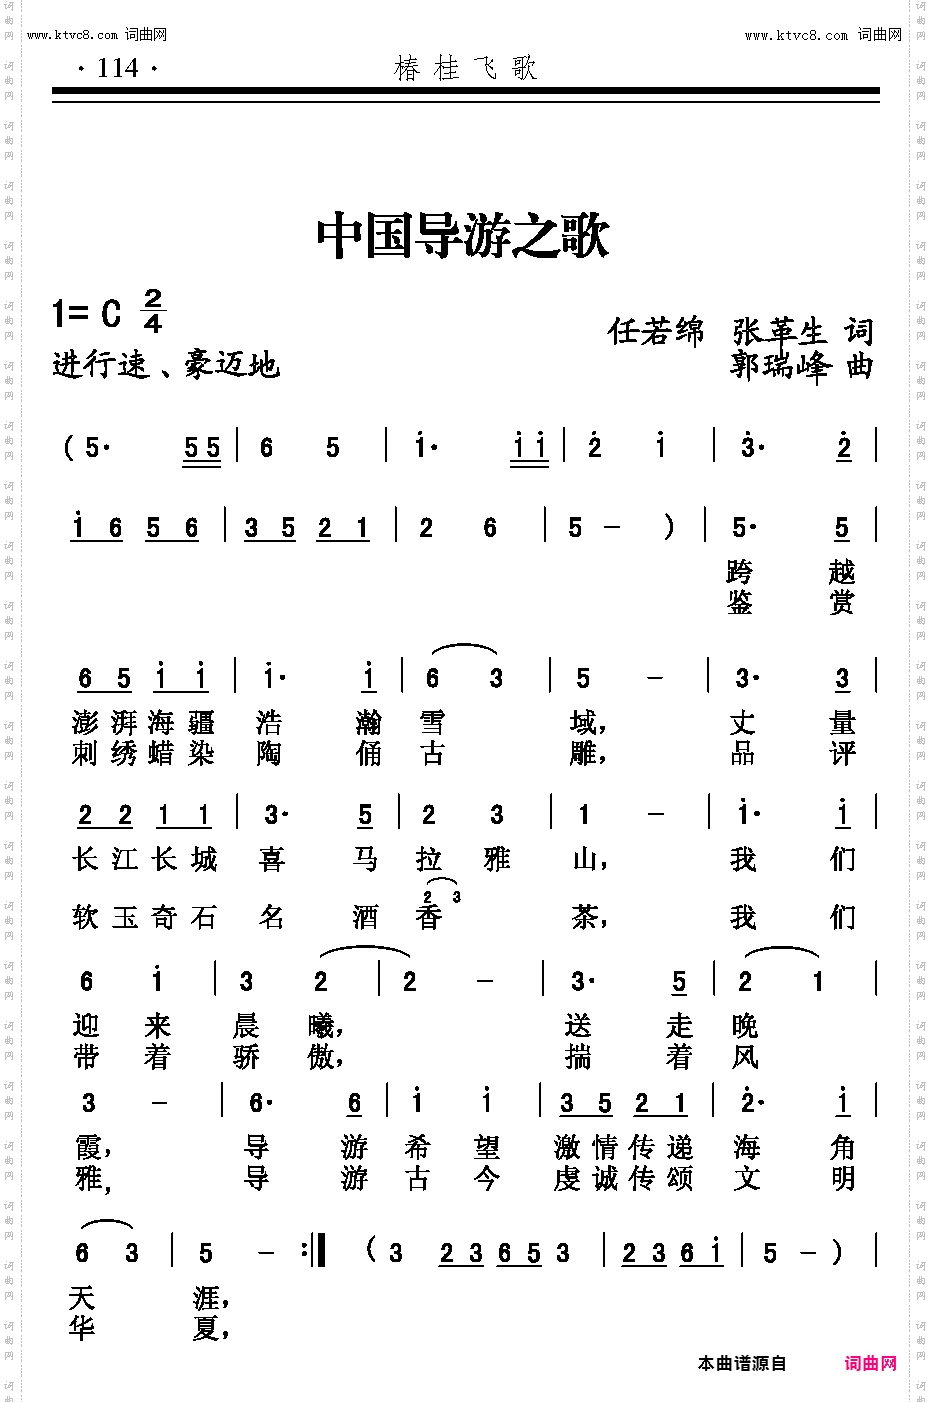 www.ktvc8.com 词曲网 www.ktvc8.com 词曲网
·114· 椿桂飞歌
中国导游之歌
1= C 2/4
任若绵 张革生 词
进行速、豪迈地 郭瑞峰 曲
( 5· 5 5 | 6 5 | i· i i | 2 i | 3· 2 |
i 6 5 6 | 3 5 2 1 | 2 6 | 5 – ) | 5· 5 |
跨 越
鉴 赏
6 5 i i | i· i | 6 3 | 5 – | 3· 3 |
澎 湃 海 疆 浩 瀚 雪 域, 丈 量
刺 绣 蜡 染 陶 俑 古 雕, 品 评
2 2 1 1 | 3· 5 | 2 3 | 1 – | i· i |
长 江 长 城 喜 马 拉 雅 山, 我 们
2 3
软 玉 奇 石 名 酒 香 茶, 我 们
6 i | 3 2 | 2 – | 3· 5 | 2 1 |
迎 来 晨 曦, 送 走 晚
带 着 骄 傲, 揣 着 风
3 – | 6· 6 | i i | 3 5 2 1 | 2· i |
霞, 导 游 希 望 激 情 传 递 海 角
雅, 导 游 古 今 虔 诚 传 颂 文 明
6 3 | 5 – :‖ ( 3 2 3 6 5 3 | 2 3 6 i | 5 – ) |
天 涯,
华 夏,
本曲谱源自 词曲网